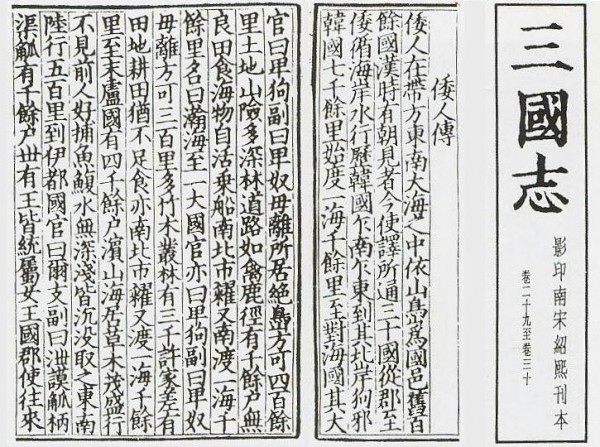 三國志
影印南宋紹熙刊本
卷二十九至卷三十
倭人傳
倭人在帶方東南大海之中依山㠀為國邑舊百
餘國漢時有朝見者今使譯所通三十國從郡至
倭循海岸水行歷韓國乍南乍東到其北岸狗邪
韓國七千餘里始度一海千餘里至對海國其大
官曰卑狗副曰卑奴毋離所居絶㠀方可四百餘
里土地山險多深林道路如禽鹿徑有千餘戶無
良田食海物自活乗船南北市糴又南渡一海千
餘里名曰瀚海至一大國官亦曰卑狗副曰卑奴
毋離方可三百里多竹木叢林有三千許家差有
田地耕田猶不足食亦南北市糴又渡一海千餘
里至末盧國有四千餘戶濱山海居草木茂盛行
不見前人好捕魚鰒水無深淺皆沉没取之東南
陸行五百里到伊都國官曰爾支副曰泄謨觚柄
渠觚有千餘戶丗有王皆統屬女王國郡使往來